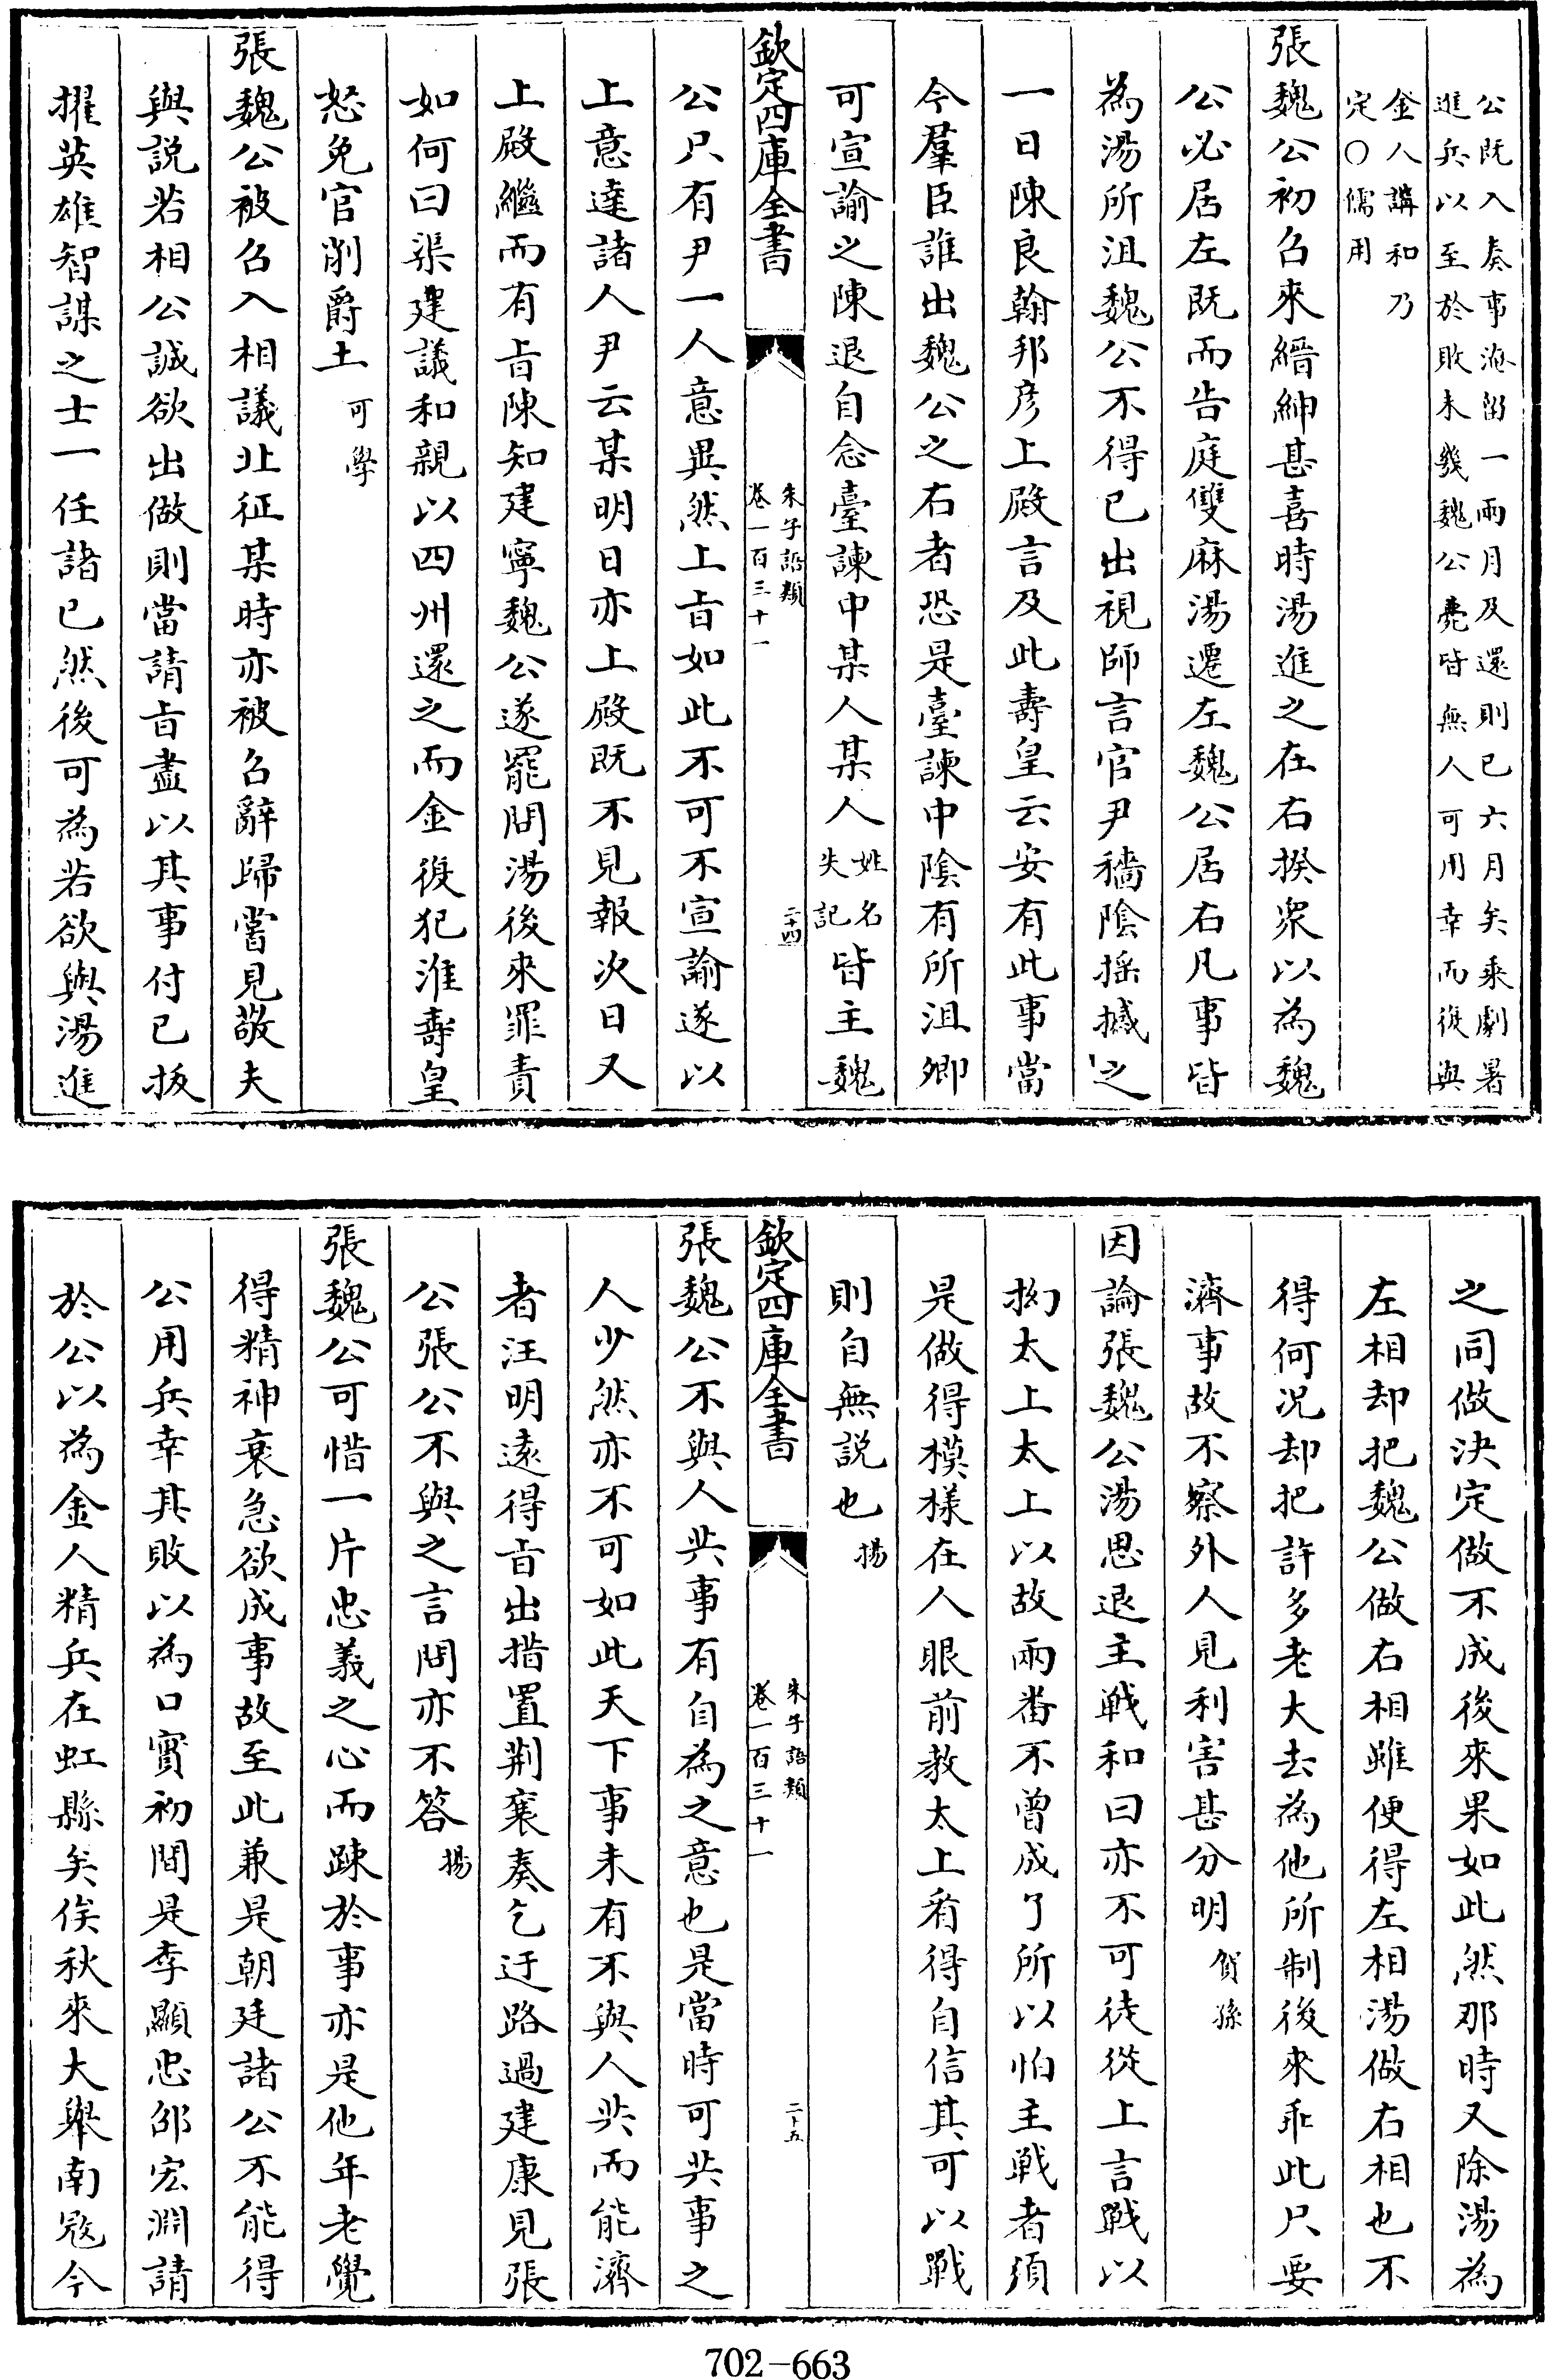 公既入奏事淹留一兩月及還則已六月矣乘劇暑
進兵以至於敗未幾魏公薨皆無人可用幸而復與
金人講和乃
定〇儒用
張魏公初召來縉紳甚喜時湯進之在右揆衆以為魏
公必居左既而告庭雙麻湯遷左魏公居右凡事皆
為湯所沮魏公不得已出視師言官尹穡陰揺撼之
一日陳良翰邦彦上殿言及此壽皇云安有此事當
今羣臣誰出魏公之右者恐是臺諫中隂有所沮卿
可宣諭之陳退自念臺諫中某人某人姓名失記皆主魏
欽定四庫全書
朱子語類
卷一百三十一
二十四
公只有尹一人意異然上㫖如此不可不宣諭遂以
上意達諸人尹云某明日亦上殿既不見報次日又
上殿繼而有㫖陳知建寧魏公遂罷間湯後來罪責
如何曰渠建議和親以四州還之而金復犯淮壽皇
怒免官削爵土可學
張魏公被召入相議北征某時亦被召辭歸嘗見敬夫
與説若相公誠欲出做則當請㫖盡以其事付已拔
擢英雄智謀之士一任諸已然後可為若欲與湯進
之同做決定做不成後來果如此然那時又除湯為
左相却把魏公做右相雖便得左相湯做右相也不
得何况却把許多老大去為他所制後來乖此只要
濟事故不察外人見利害甚分明賀孫
因論張魏公湯思退主戰和曰亦不可徒從上言戰以
拗太上太上以故兩番不曾成了所以怕主戰者須
是做得模樣在人眼前教太上看得自信其可以戰
則自無説也揚
欽定四庫全書
朱子語類
卷一百三十一
二十五
張魏公不與人共事有自為之意也是當時可共事之
人少然亦不可如此天下事未有不與人共而能濟
者汪明逺得㫖出措置荆襄奏乞迂路過建康見張
公張公不與之言問亦不答揚
張魏公可惜一片忠義之心而踈於事亦是他年老覺
得精神衰急欲成事故至此兼是朝廷諸公不能得
公用兵幸其敗以為口實初間是李顯忠邵宏淵請
於公以為金人精兵在虹縣矣俟秋來大舉南冦今
702-663